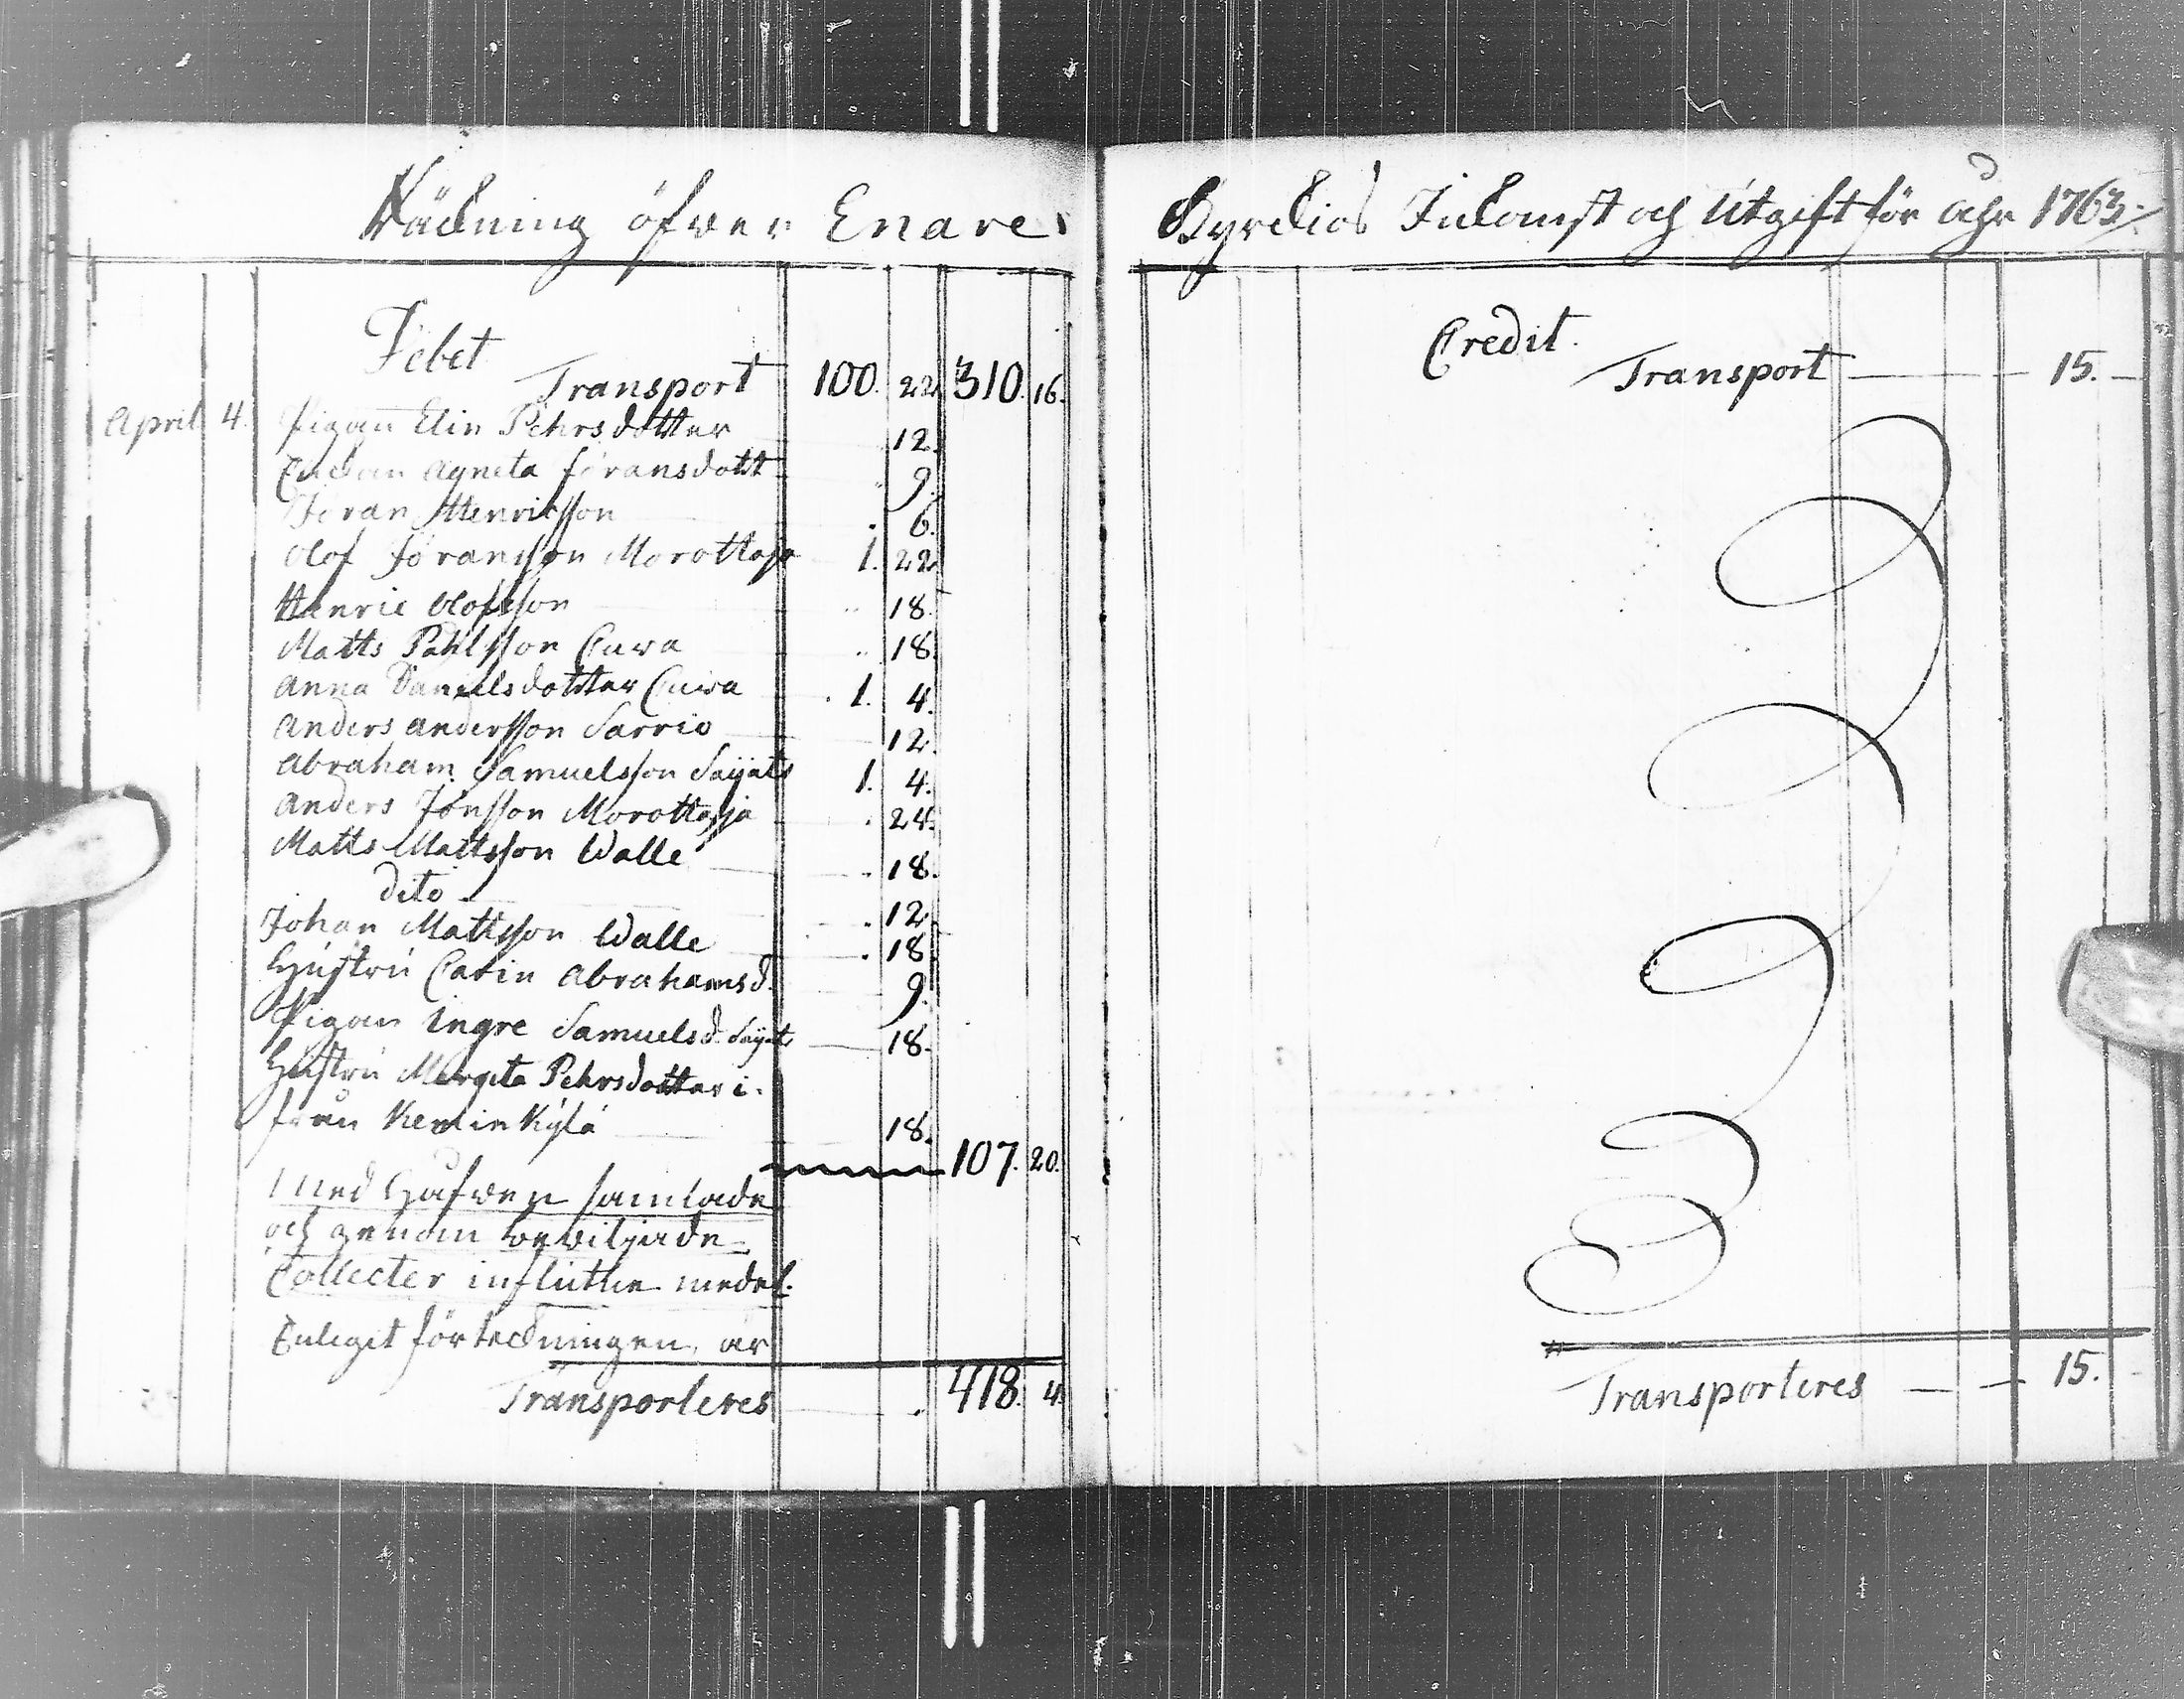 Räckning öfwer Enare
Debet
Transport 100. 22. 310. 16.
April 4. Pigan Elin Pehrsdotter 12.
Enckan Agneta Jöransdott 9.
Jöran Henricsson . 6.
Olof Jöransson Morottaja 1. 22.
Henric Olofsson .. 18.
Matts Påhlsson Cuwa .. 18.
Anna Danielsdotter Cuwa . 1. 4.
Anders Andersson Sarrio 12.
Abraham Samuelsson Saijets 1. 4.
Anders Jönsson Morottaja . 24.
Matts Mattsson Walle . 18.
dito . 12.
Johan Mattsson Walle . 18.
Hustru Carin Abrahamsd. 9.
Pigan Ingre Samuelsd. Saijets 18.
Hustru Margeta Pehrsdotter i.
från Kemin Kylä 18.
107. 20.
Med Håfwen samlade
och genom bewiljade
Collecter influtne medel.
Enligit förteckningen, är
Transporteres . 418. 4.
Kyrckios Inkomst och Utgift för åhr 1763.
Credit.
Transport 15.
Transporteres 15.